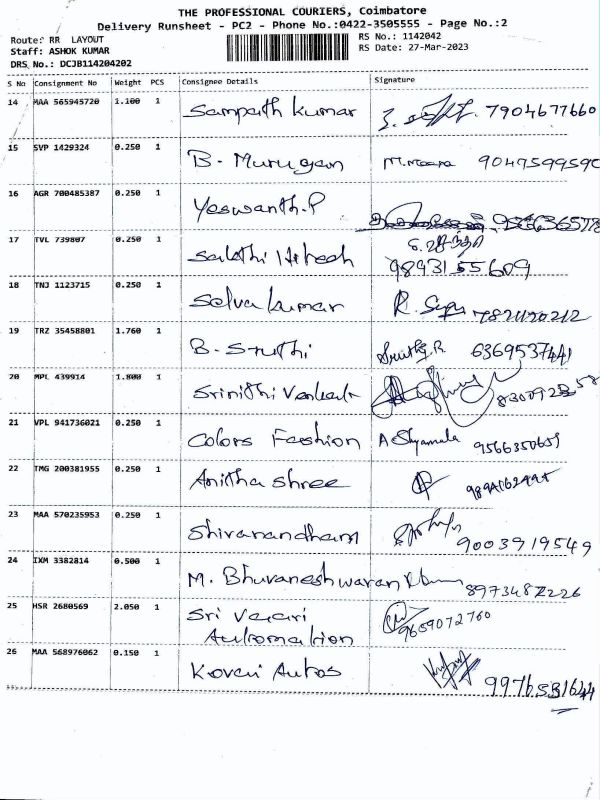 THE PROFESSIONAL COURIERS, Coimbatore
Delivery Runsheet - PC2 - Phone No.:0422-3505555 - Page No.:2
Route: RR LAYOUT
RS No.: 1142042
Staff: ASHOK KUMAR
RS Date: 27-Mar-2023
DRS No.: DCJB114204202
S No Consignment No Weight PCS Consignee Details Signature
14 MAA 565945720 1.100 1 Sampath Kumar 7904677660
15 SVP 1429324 0.250 1 B. Murugan M.Meena
16 AGR 700485387 0.250 1 Yeswanth.P
17 TVL 739807 0.250 1 Sakthi Hitesh 9893155609
18 TNJ 1123715 0.250 1 Selva kumar
19 TRZ 35458801 1.760 1 B. Sruthi Sruthy.R 6369537441
20 MPL 439914 1.800 1 Srinithi
21 VPL 941736021 0.250 1 Colors Fashion A Shyamala 9566350651
22 TMG 200381955 0.250 1 Anitha shree
23 MAA 570235953 0.250 1 Shivanandham 9003919549
24 IXM 3382814 0.500 1 M. Bhuvaneshwaran
25 HSR 2680569 2.050 1 Sri Vaari 9659072760
Automation
26 MAA 568976062 0.150 1 Kovai Autos